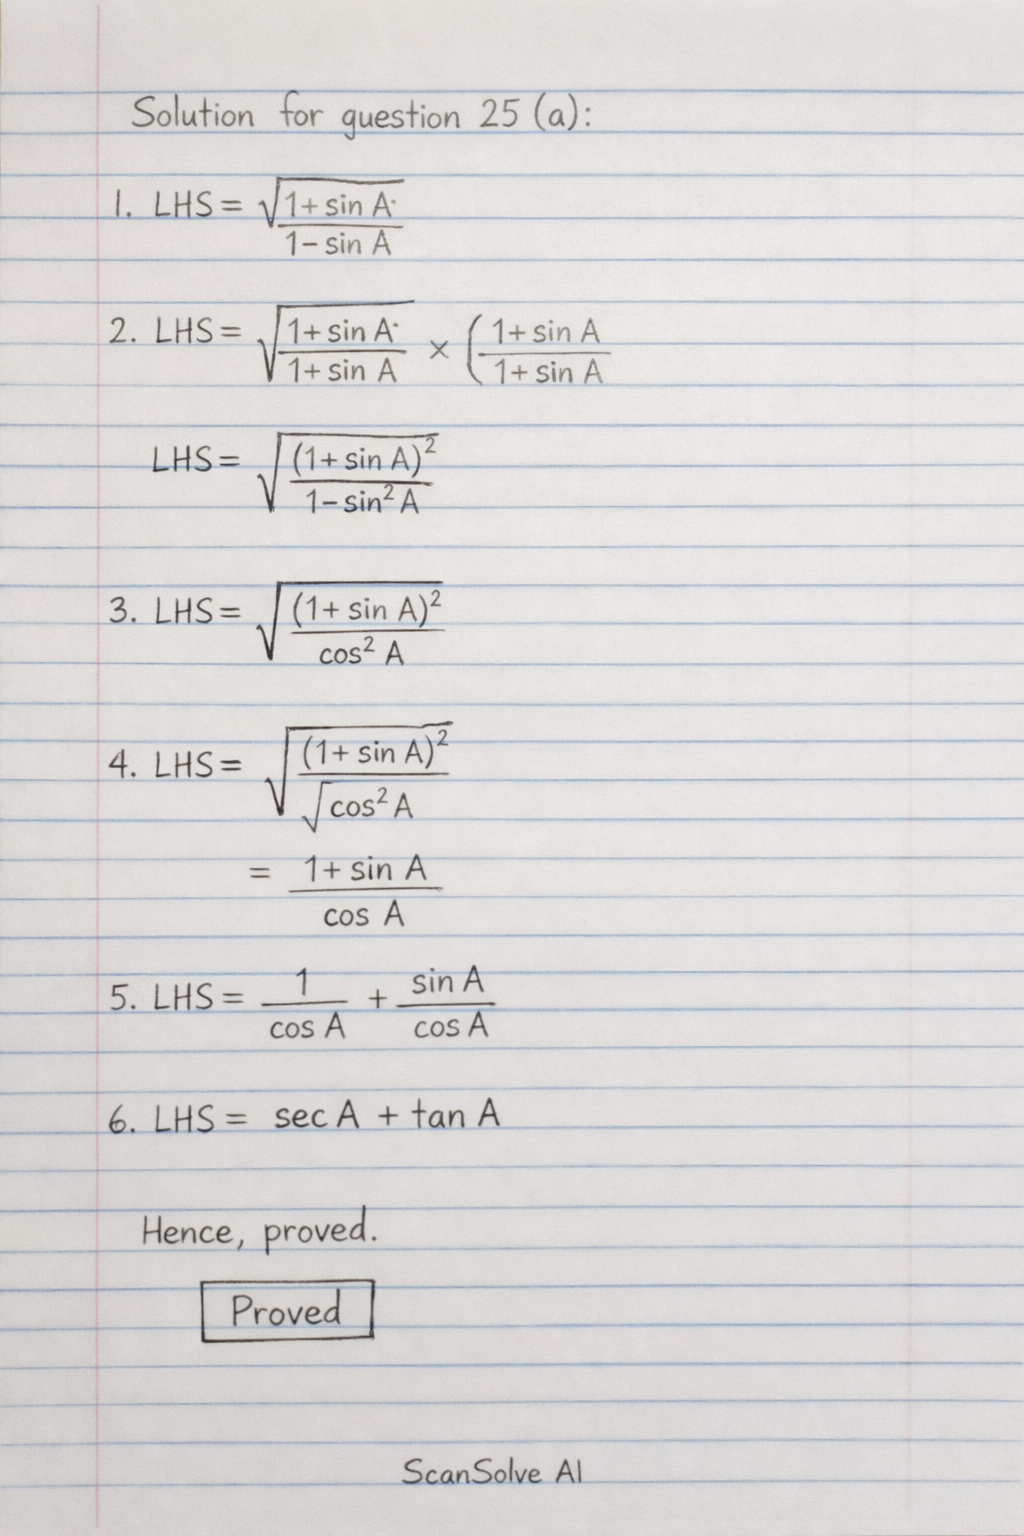 Solution for question 25 (a):
1. LHS = √(1 + sin A· / 1 − sin A)
2. LHS = √(1 + sin A· / 1 + sin A) × (1 + sin A / 1 + sin A
LHS = √((1 + sin A)² / 1 − sin² A)
3. LHS = √((1 + sin A)² / cos² A)
4. LHS = √((1 + sin A)² / √cos² A)
= 1 + sin A / cos A
5. LHS = 1 / cos A + sin A / cos A
6. LHS = sec A + tan A
Hence, proved.
Proved
ScanSolve AI